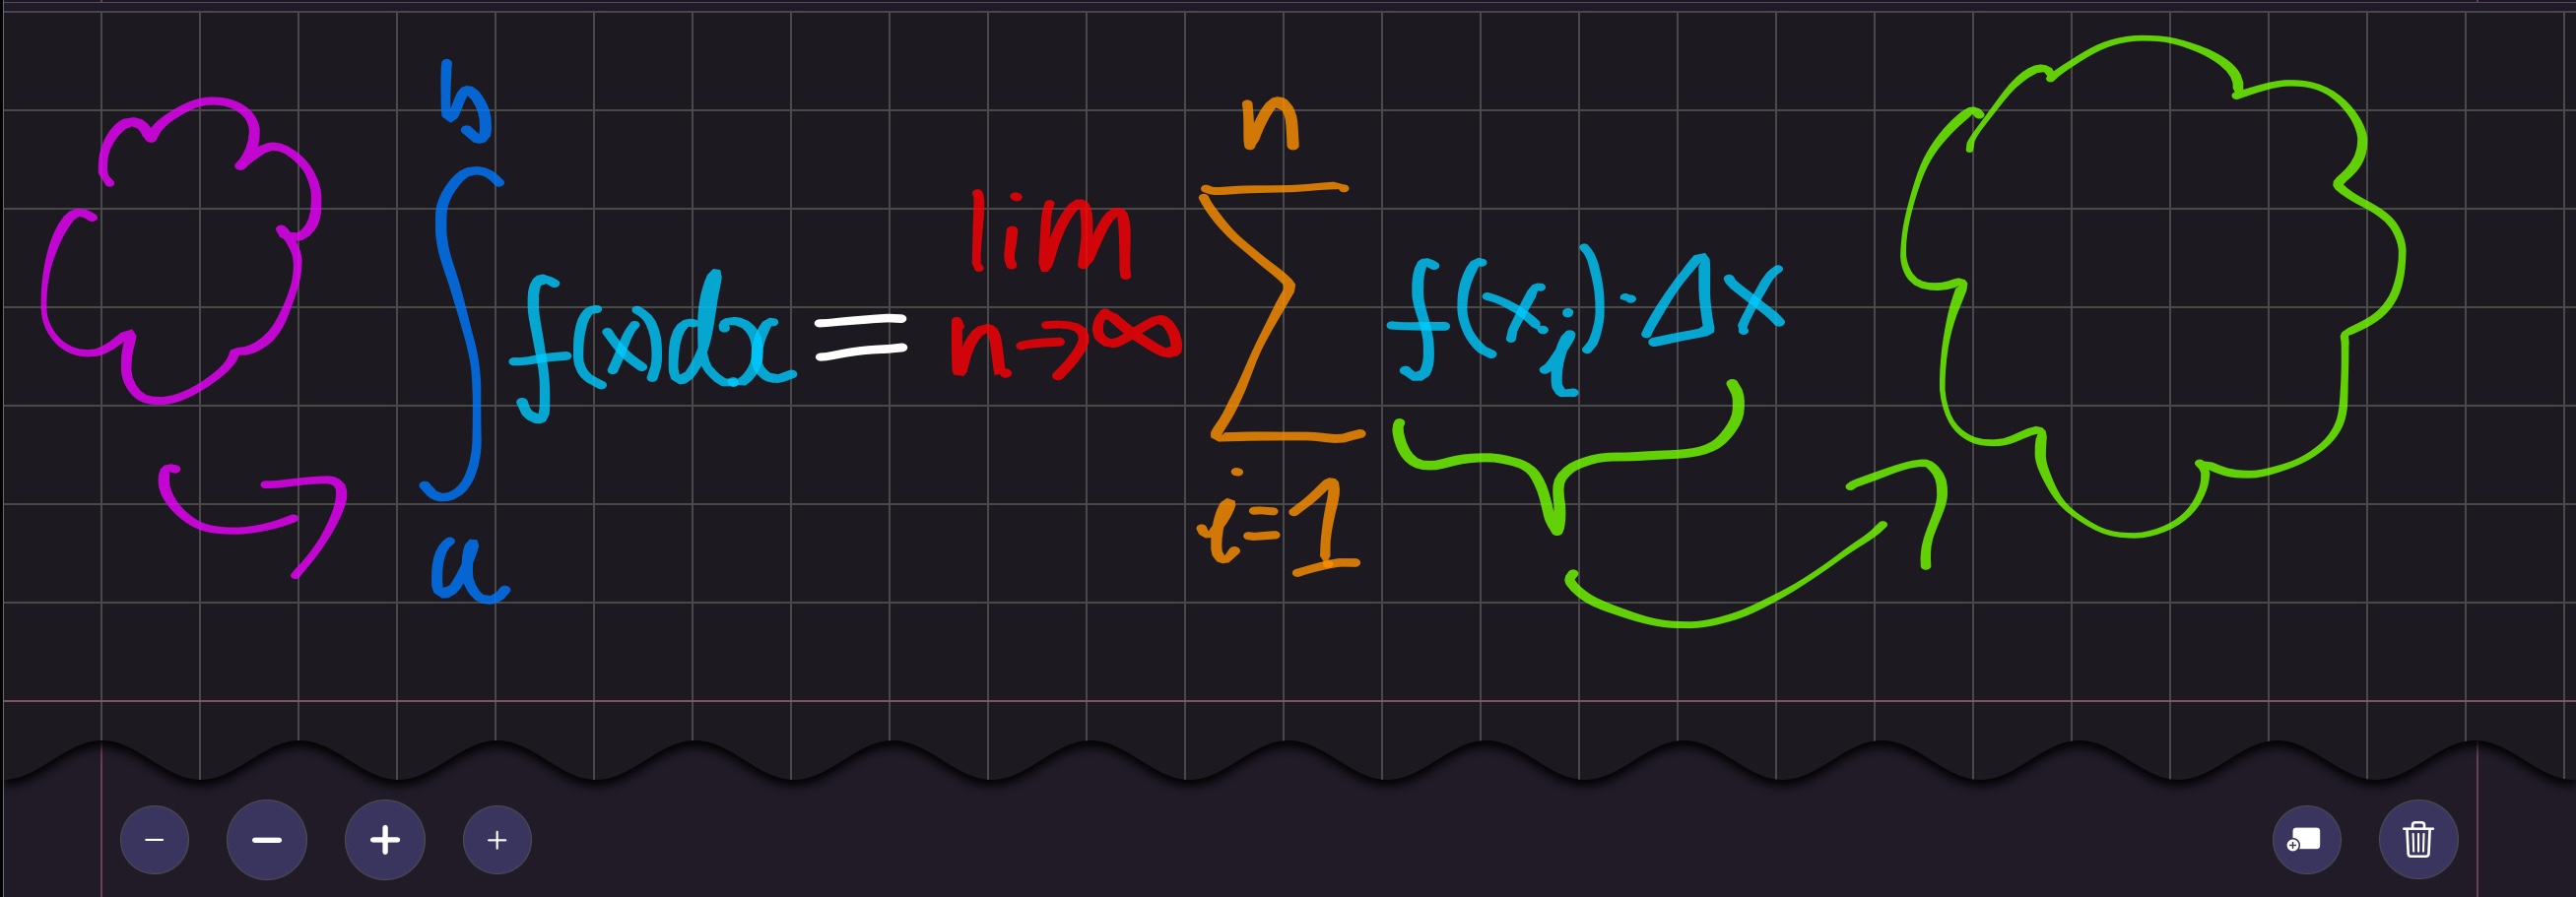 ∫_a^b f(x)dx = lim_{n→∞} ∑_{i=1}^n f(x_i)·Δx